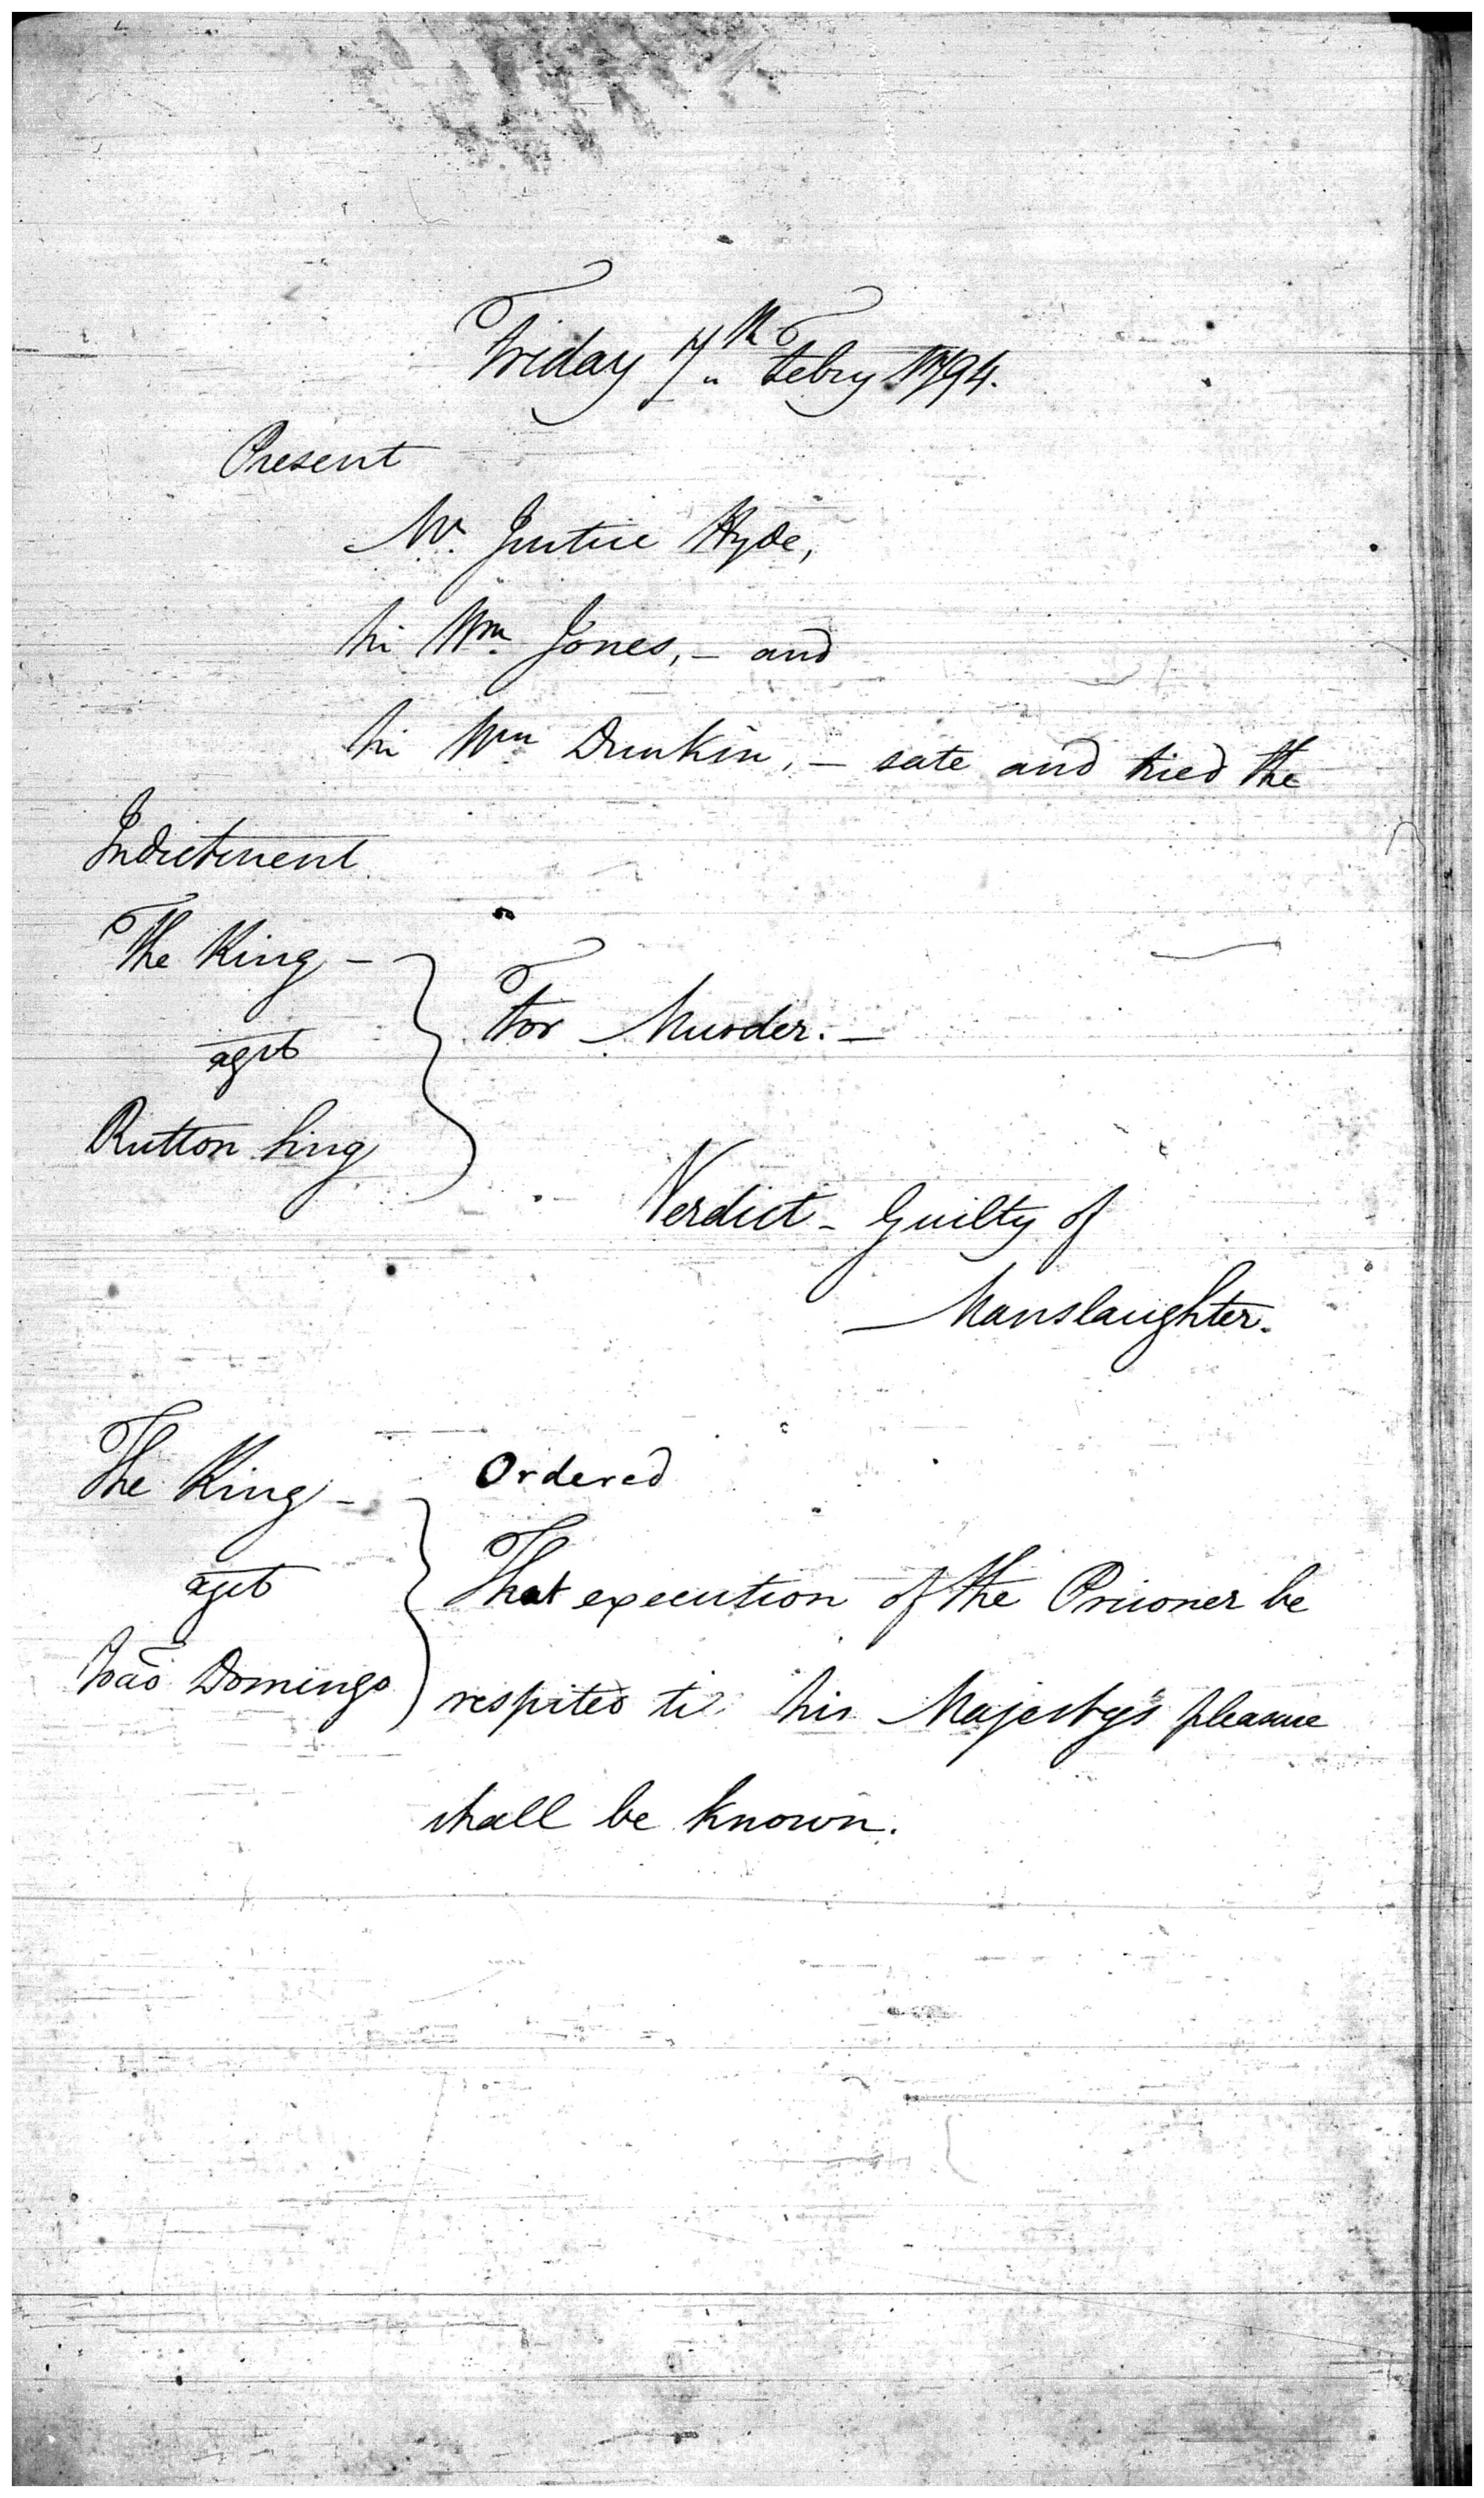 Friday 7th Febry 1794.
Present
Mr. Justice Hyde,
Sir Wm. Jones, – and
Sir Wm Dunkin, – sate and tried the
Indictment
The King –
agst
Rutton Sing
For Murder. –
Verdict – Guilty of
Manslaughter.
The King –
agst
Domingo
Ordered
That execution of the Prisoner be
respited til his Majesty's pleasure
shall be known.